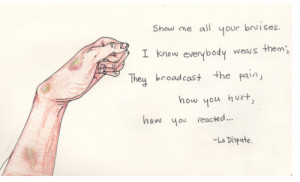 Show me all your bruises.
I know everybody wears them;
They broadcast the pain,
how you hurt,
how you reacted...
-La Dispute.